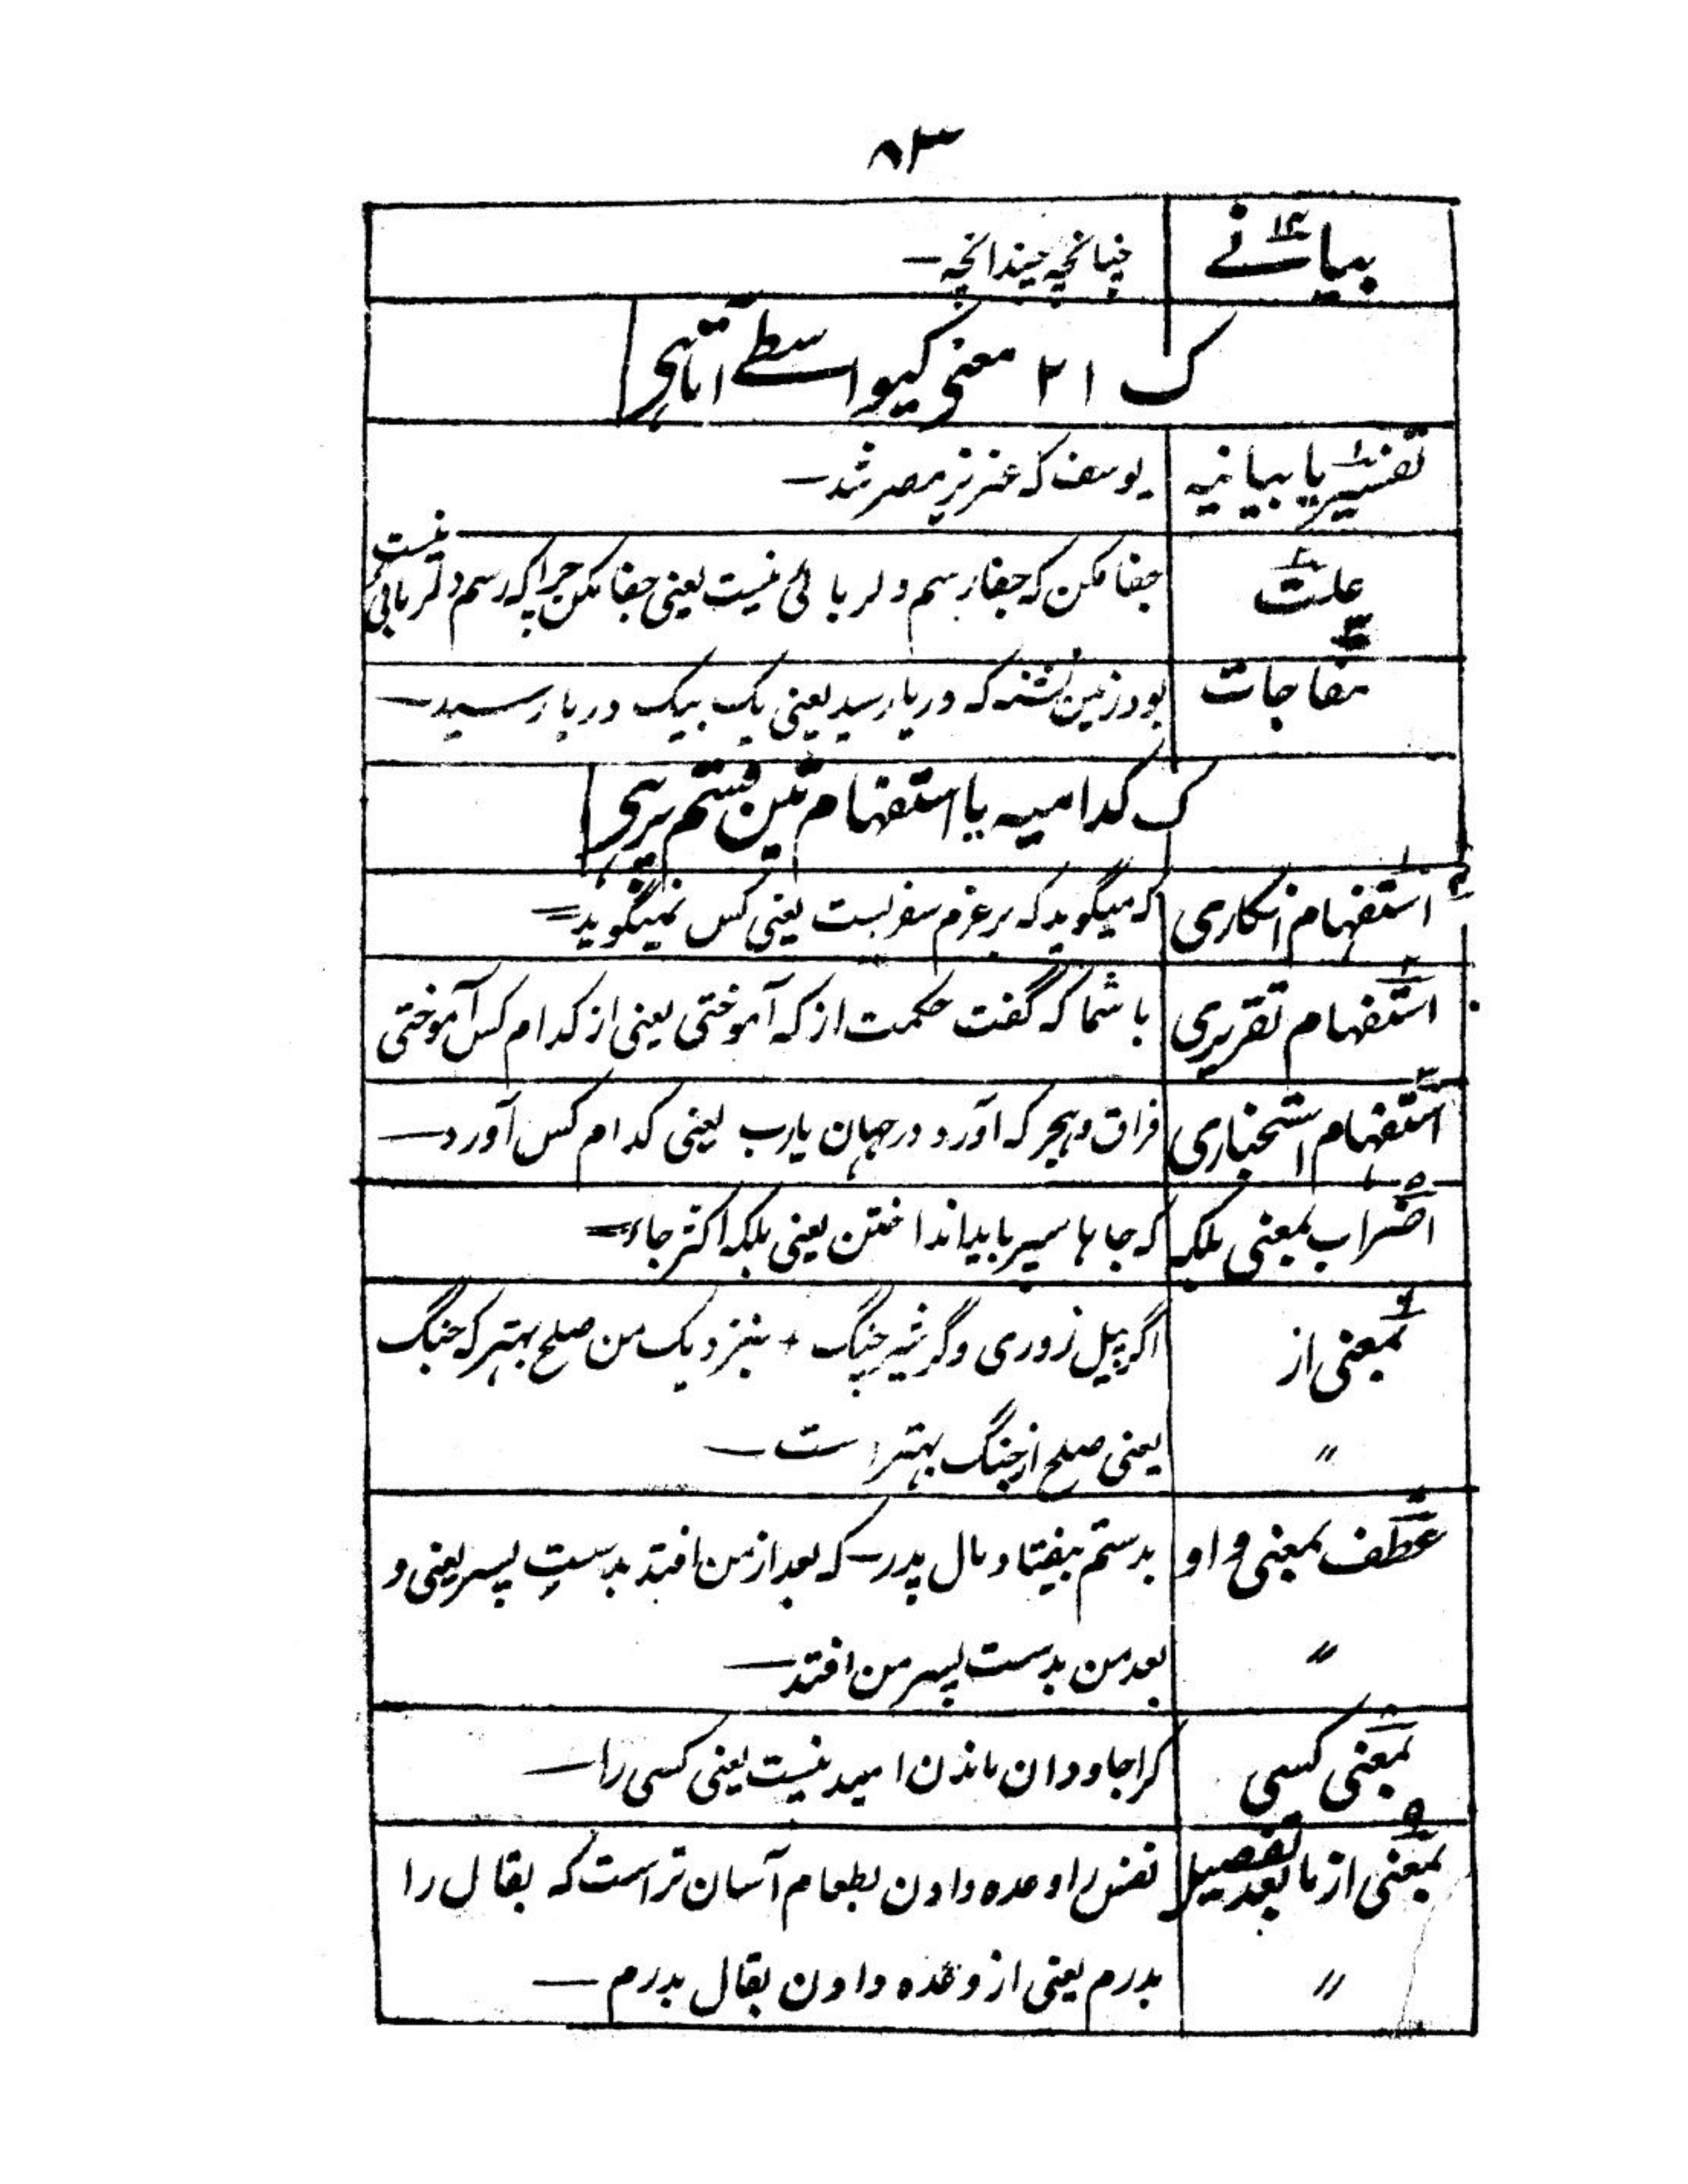 ۸۳
بیانے ۱۴ چنانچہ چندانچہ۔
ک ۲۱ معنی کیواسطے آتاہی
تفسیر یا بیانیہ ۱ یوسف کہ عزیز مصر شد۔
علت ۲ جفا مکن کہ جفا رسم دلربائی نیست یعنی جفا مکن چراکہ رسم دلربائی نیست
مفاجات ۳ بود زمین تشنہ کہ دریا رسید یعنی یک بیک دریا رسید۔
ک کدامیہ یا استفہام تین قسم پر ہی
۴ استفہام انکاری ۱ کہ میگوید کہ بر عزم سفر بست یعنی کس نمیگوید۔
استفہام تقریری ۲ با شما کہ گفت حکمت از کہ آموختی یعنی از کدام کس آموختی
استفہام استخباری ۳ فراق و ہجر کہ آورد در جہان یارب یعنی کدام کس آورد۔
اضراب بمعنی بلکہ ۵ کہ جاہا سپر باید انداختن یعنی بلکہ اکثر جاء۔
بمعنی از ۶ اگر پیل زوری وگر شیر چنگ + بنزدیک من صلح بہتر کہ جنگ
〃 یعنی صلح از جنگ بہتر است۔
عطف بمعنی واو ۷ بدستم بیفتاد مال پدر۔ کہ بعد از من افتد بدست پسر یعنی و
〃 بعد من بدست پسر من افتد۔
بمعنی کسی ۸ کرا جاودان ماندن امید نیست یعنی کسی را۔
بمعنی از مابعد تفصیل ۹ نفس را وعدہ دادن بطعام آسان تر است کہ بقال را
〃 بدرم یعنی از وعدہ دادن بقال بدرم۔